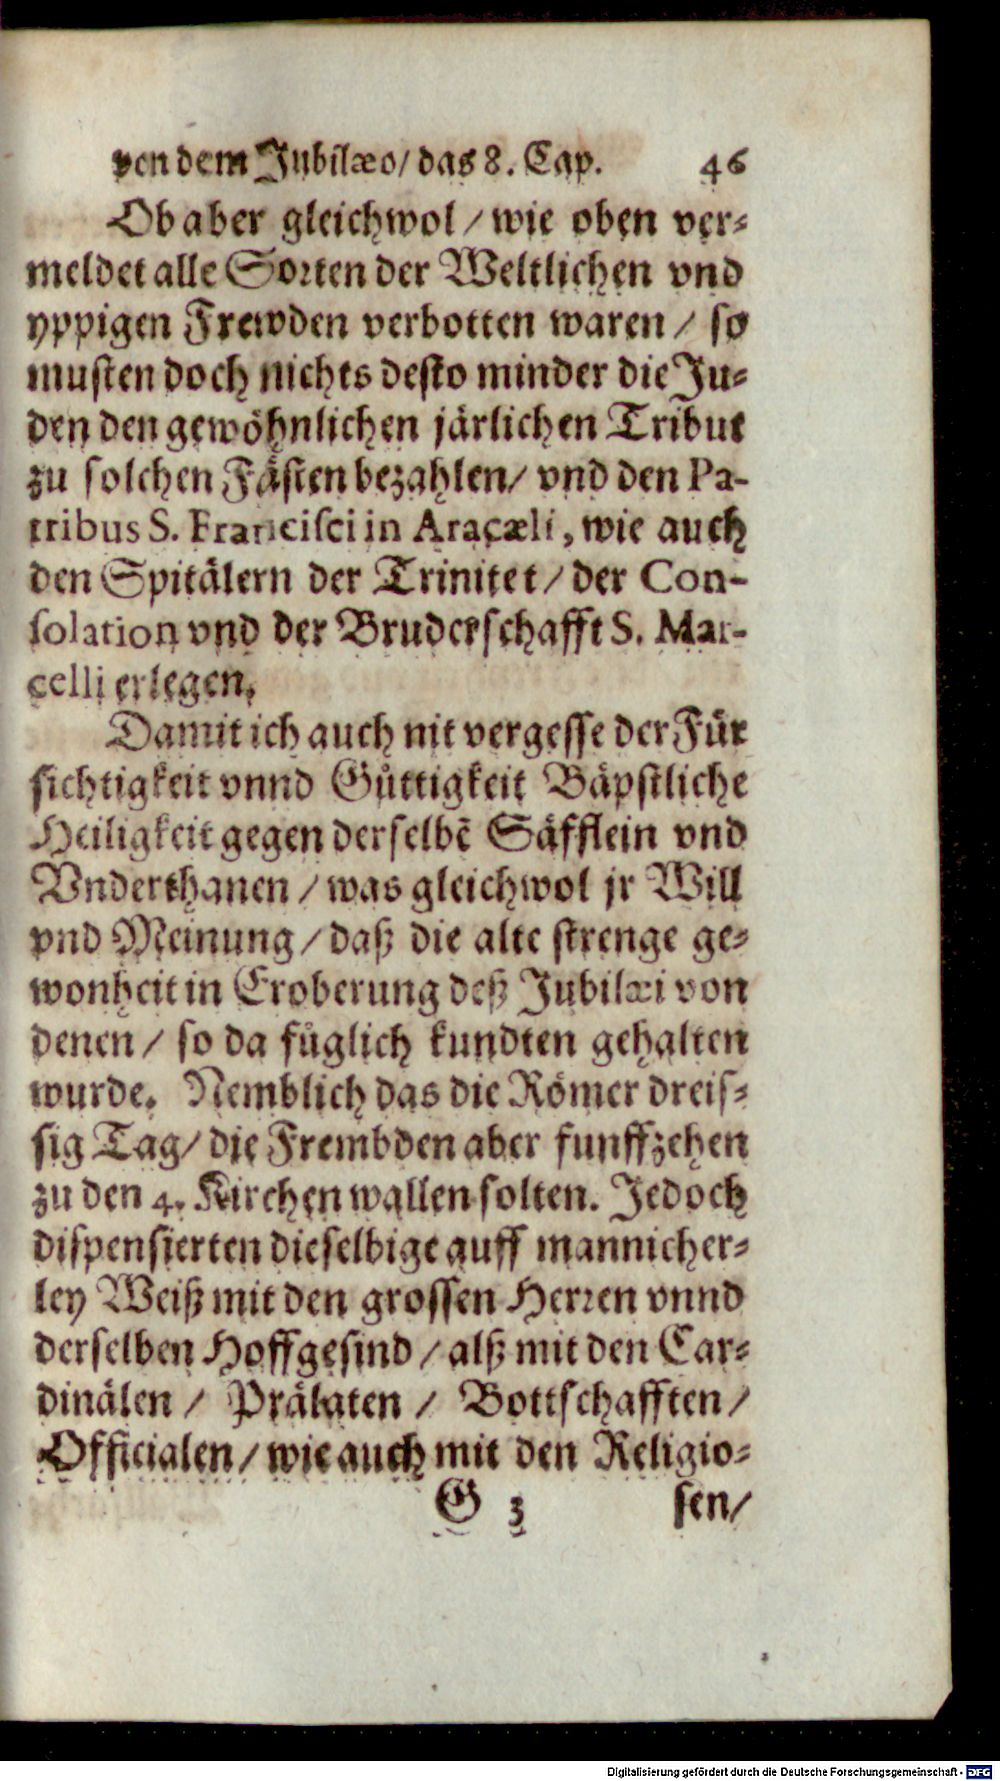 von dem Jubilæo/ das 8. Cap. 46
Ob aber gleichwol / wie oben ver-
meldet alle Sorten der Weltlichen vnd
yppigen Frewden verbotten waren / so
musten doch nichts desto minder die Ju-
den den gewöhnlichen järlichen Tribut
zu solchen Fästen bezahlen/ vnd den Pa-
tribus S. Francisci in Aracæli, wie auch
den Spitälern der Trinitet / der Con-
solation vnd der Bruderschafft S. Mar-
celli erlegen.
Damit ich auch nit vergesse der Für
sichtigkeit vnnd Güttigkeit Bäpstliche
Heiligkeit gegen derselbẽ Säfflein vnd
Vnderthanen / was gleichwol jr Will
vnd Meinung / daß die alte strenge ge-
wonheit in Eroberung deß Jubilæi von
denen / so da füglich kundten gehalten
wurde. Nemblich das die Römer dreis-
sig Tag/ die Frembden aber funffzehen
zu den 4. Kirchen wallen solten. Jedoch
dispensierten dieselbige auff mannicher-
ley Weiß mit den grossen Herren vnnd
derselben Hoffgesind / alß mit den Car-
dinälen / Prälaten / Bottschafften /
Officialen / wie auch mit den Religio-
G 3 sen/
Digitalisierung gefördert durch die Deutsche Forschungsgemeinschaft - DFG